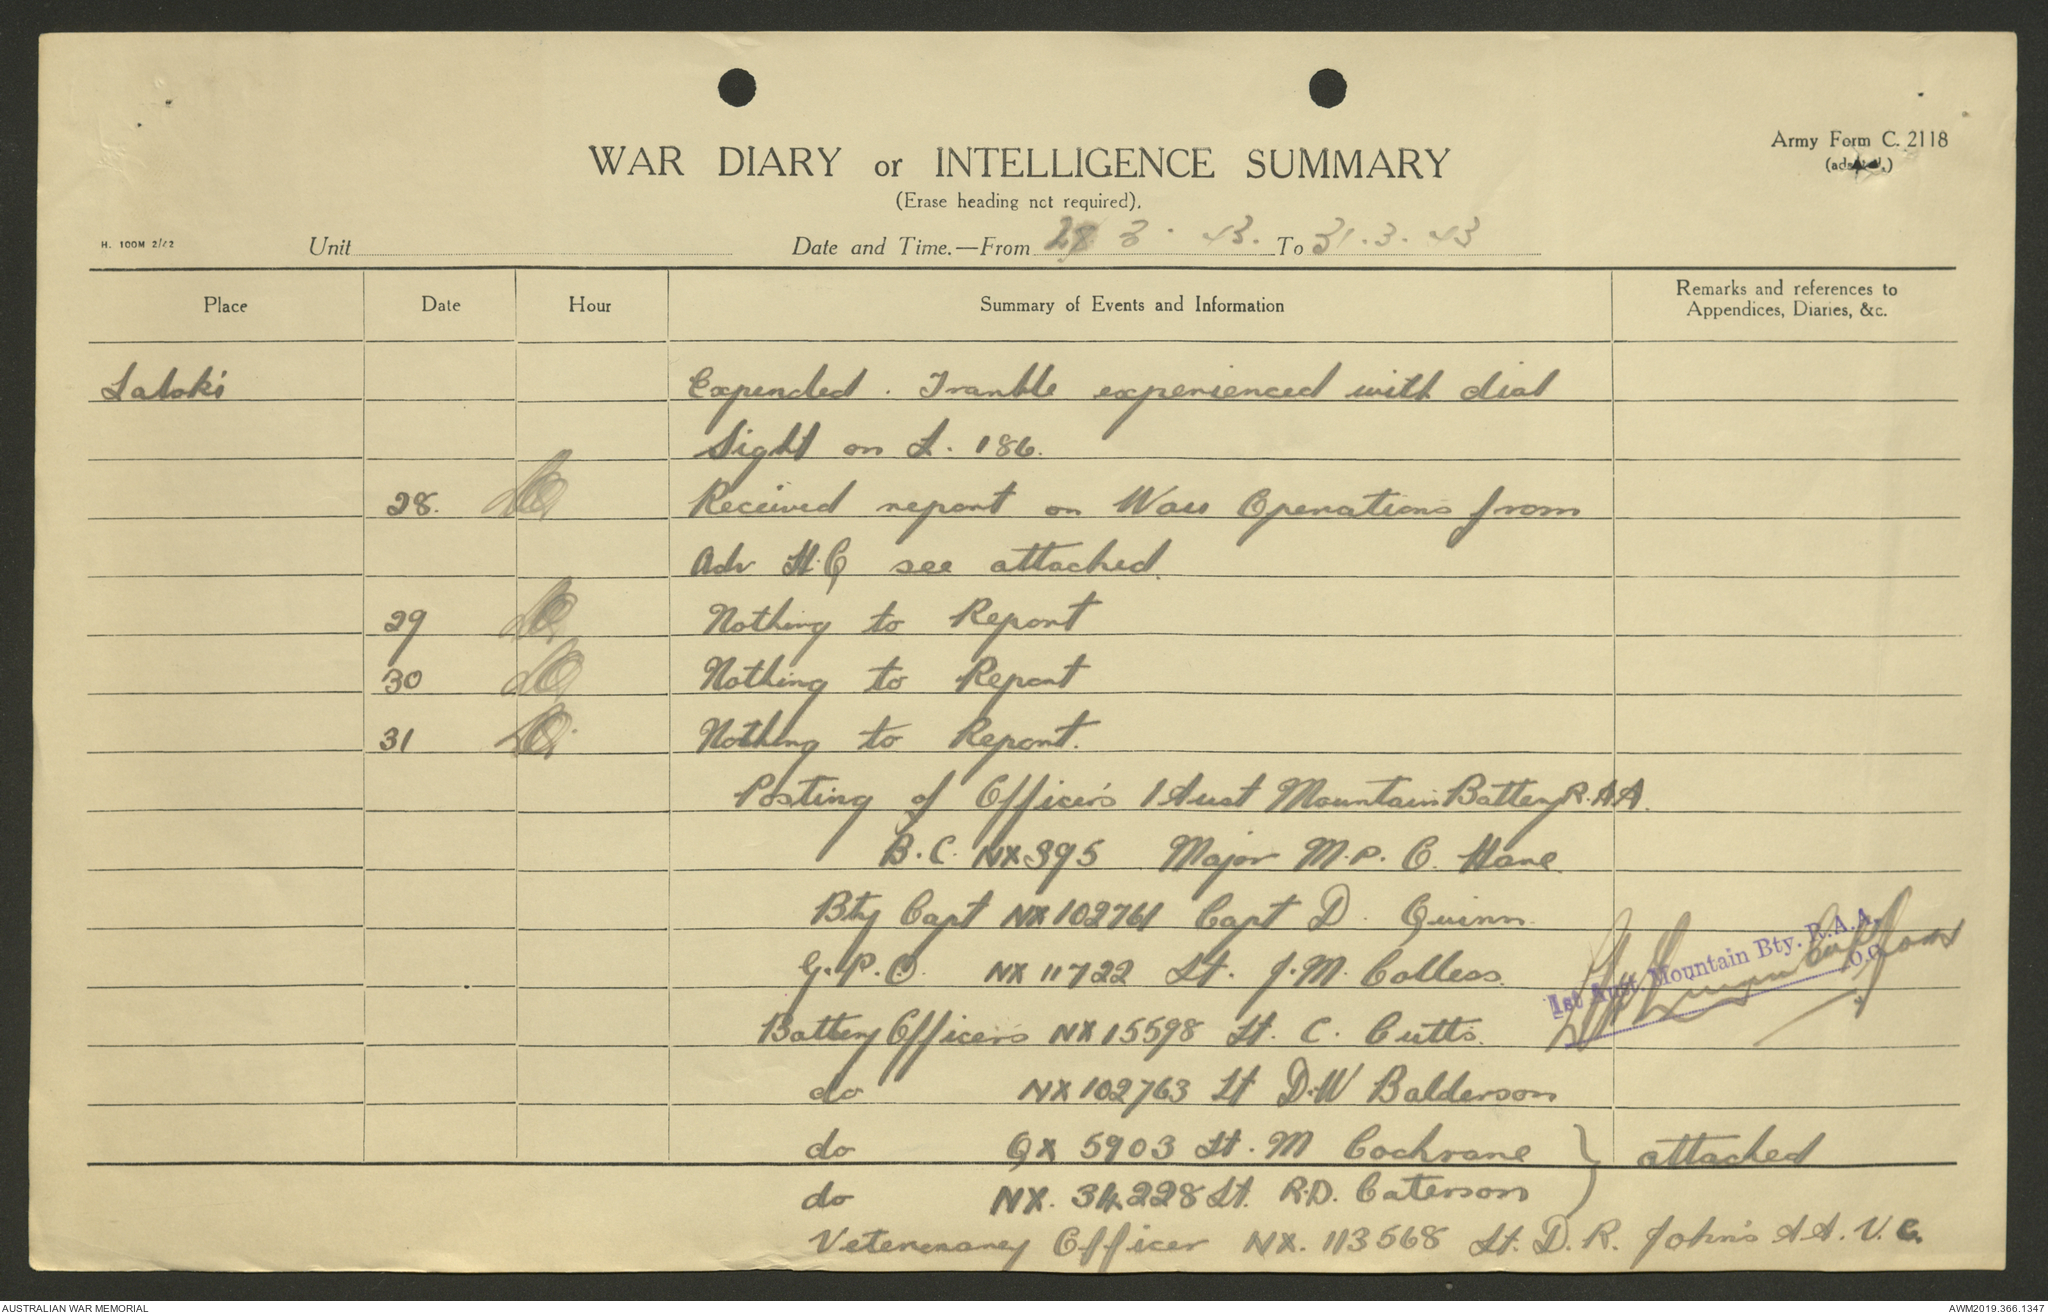 Army Form C. 2118
(adapted.)
WAR DIARY or INTELLIGENCE SUMMARY
(Erase heading not required).
H. 100M 2/42
Unit
Date and Time.—From 28 3 · 43. To 31 . 3 . 43
Place
Date
Hour
Summary of Events and Information
Remarks and references to
Appendices, Diaries, &c.
Laloki Expended. Trouble experienced with dial
Sight on L. 186.
28. Received report on Wau Operations from
Adv H.Q see attached.
29 Nothing to Report
30 Nothing to Report
31 Nothing to Report.
Posting of Officers 1 Aust Mountain Battery R.A.A.
B.C. NX395 Major M.P. O. Hare
Bty Capt NX102761 Capt D. Quinn.
G.P.O. NX 11722 Lt. J.M. Colless.
1st Aust. Mountain Bty. R.A.A.
O.C.
Battery Officers NX15598 Lt. C. Cutts.
do NX102763 Lt D.W Balderson
do QX 5903 Lt. M Cochrane } attached
do NX. 34228 Lt. R.D. Caterson
Veterenarey Officer NX. 113568 Lt. D. R. Johns A A. V. C.
AUSTRALIAN WAR MEMORIAL
AWM2019.366.1347